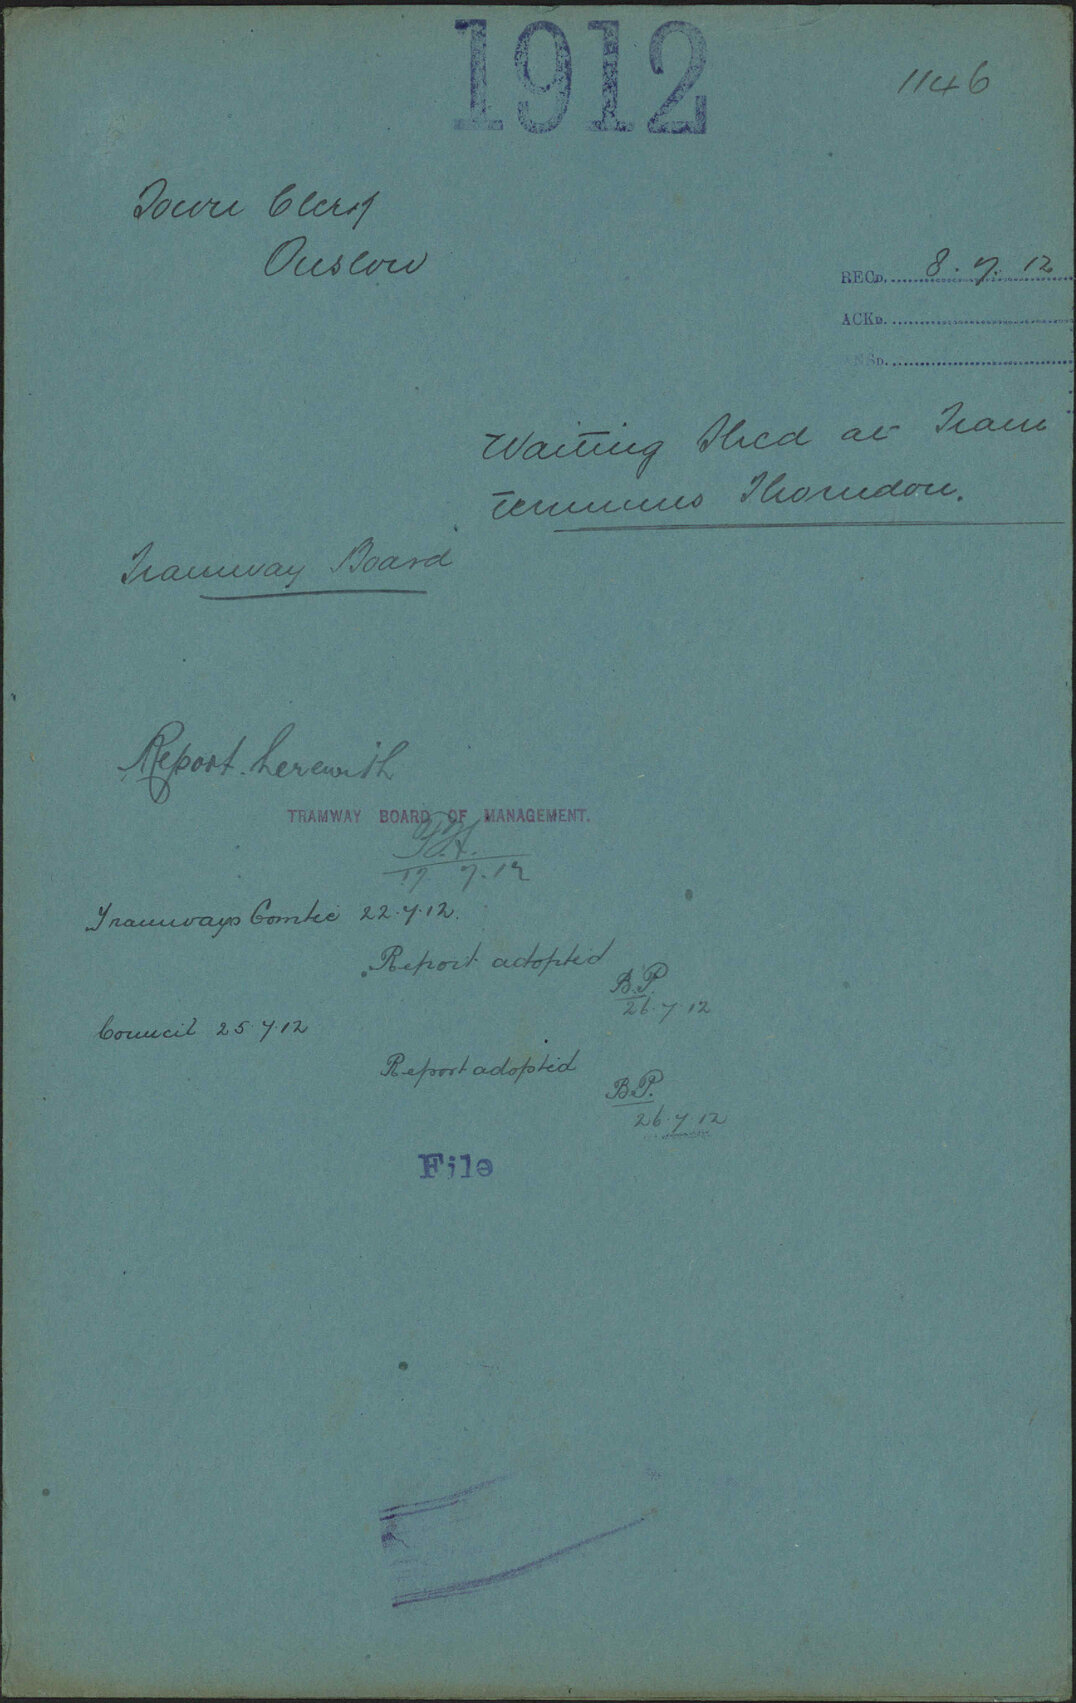 1912
1146
Town Clerk
Onslow
RECD. 8.7.12
ACKD.
ANSD.
Waiting Shed at Tram
terminus Thorndon.
Tramway Board
Report herewith
TRAMWAY BOARD OF MANAGEMENT.
17 7.12
Tramways Comtee 22.7.12.
Report adopted
B.P.
26.7.12
Council 25.7.12
Report adopted
B.P.
26.7.12
File